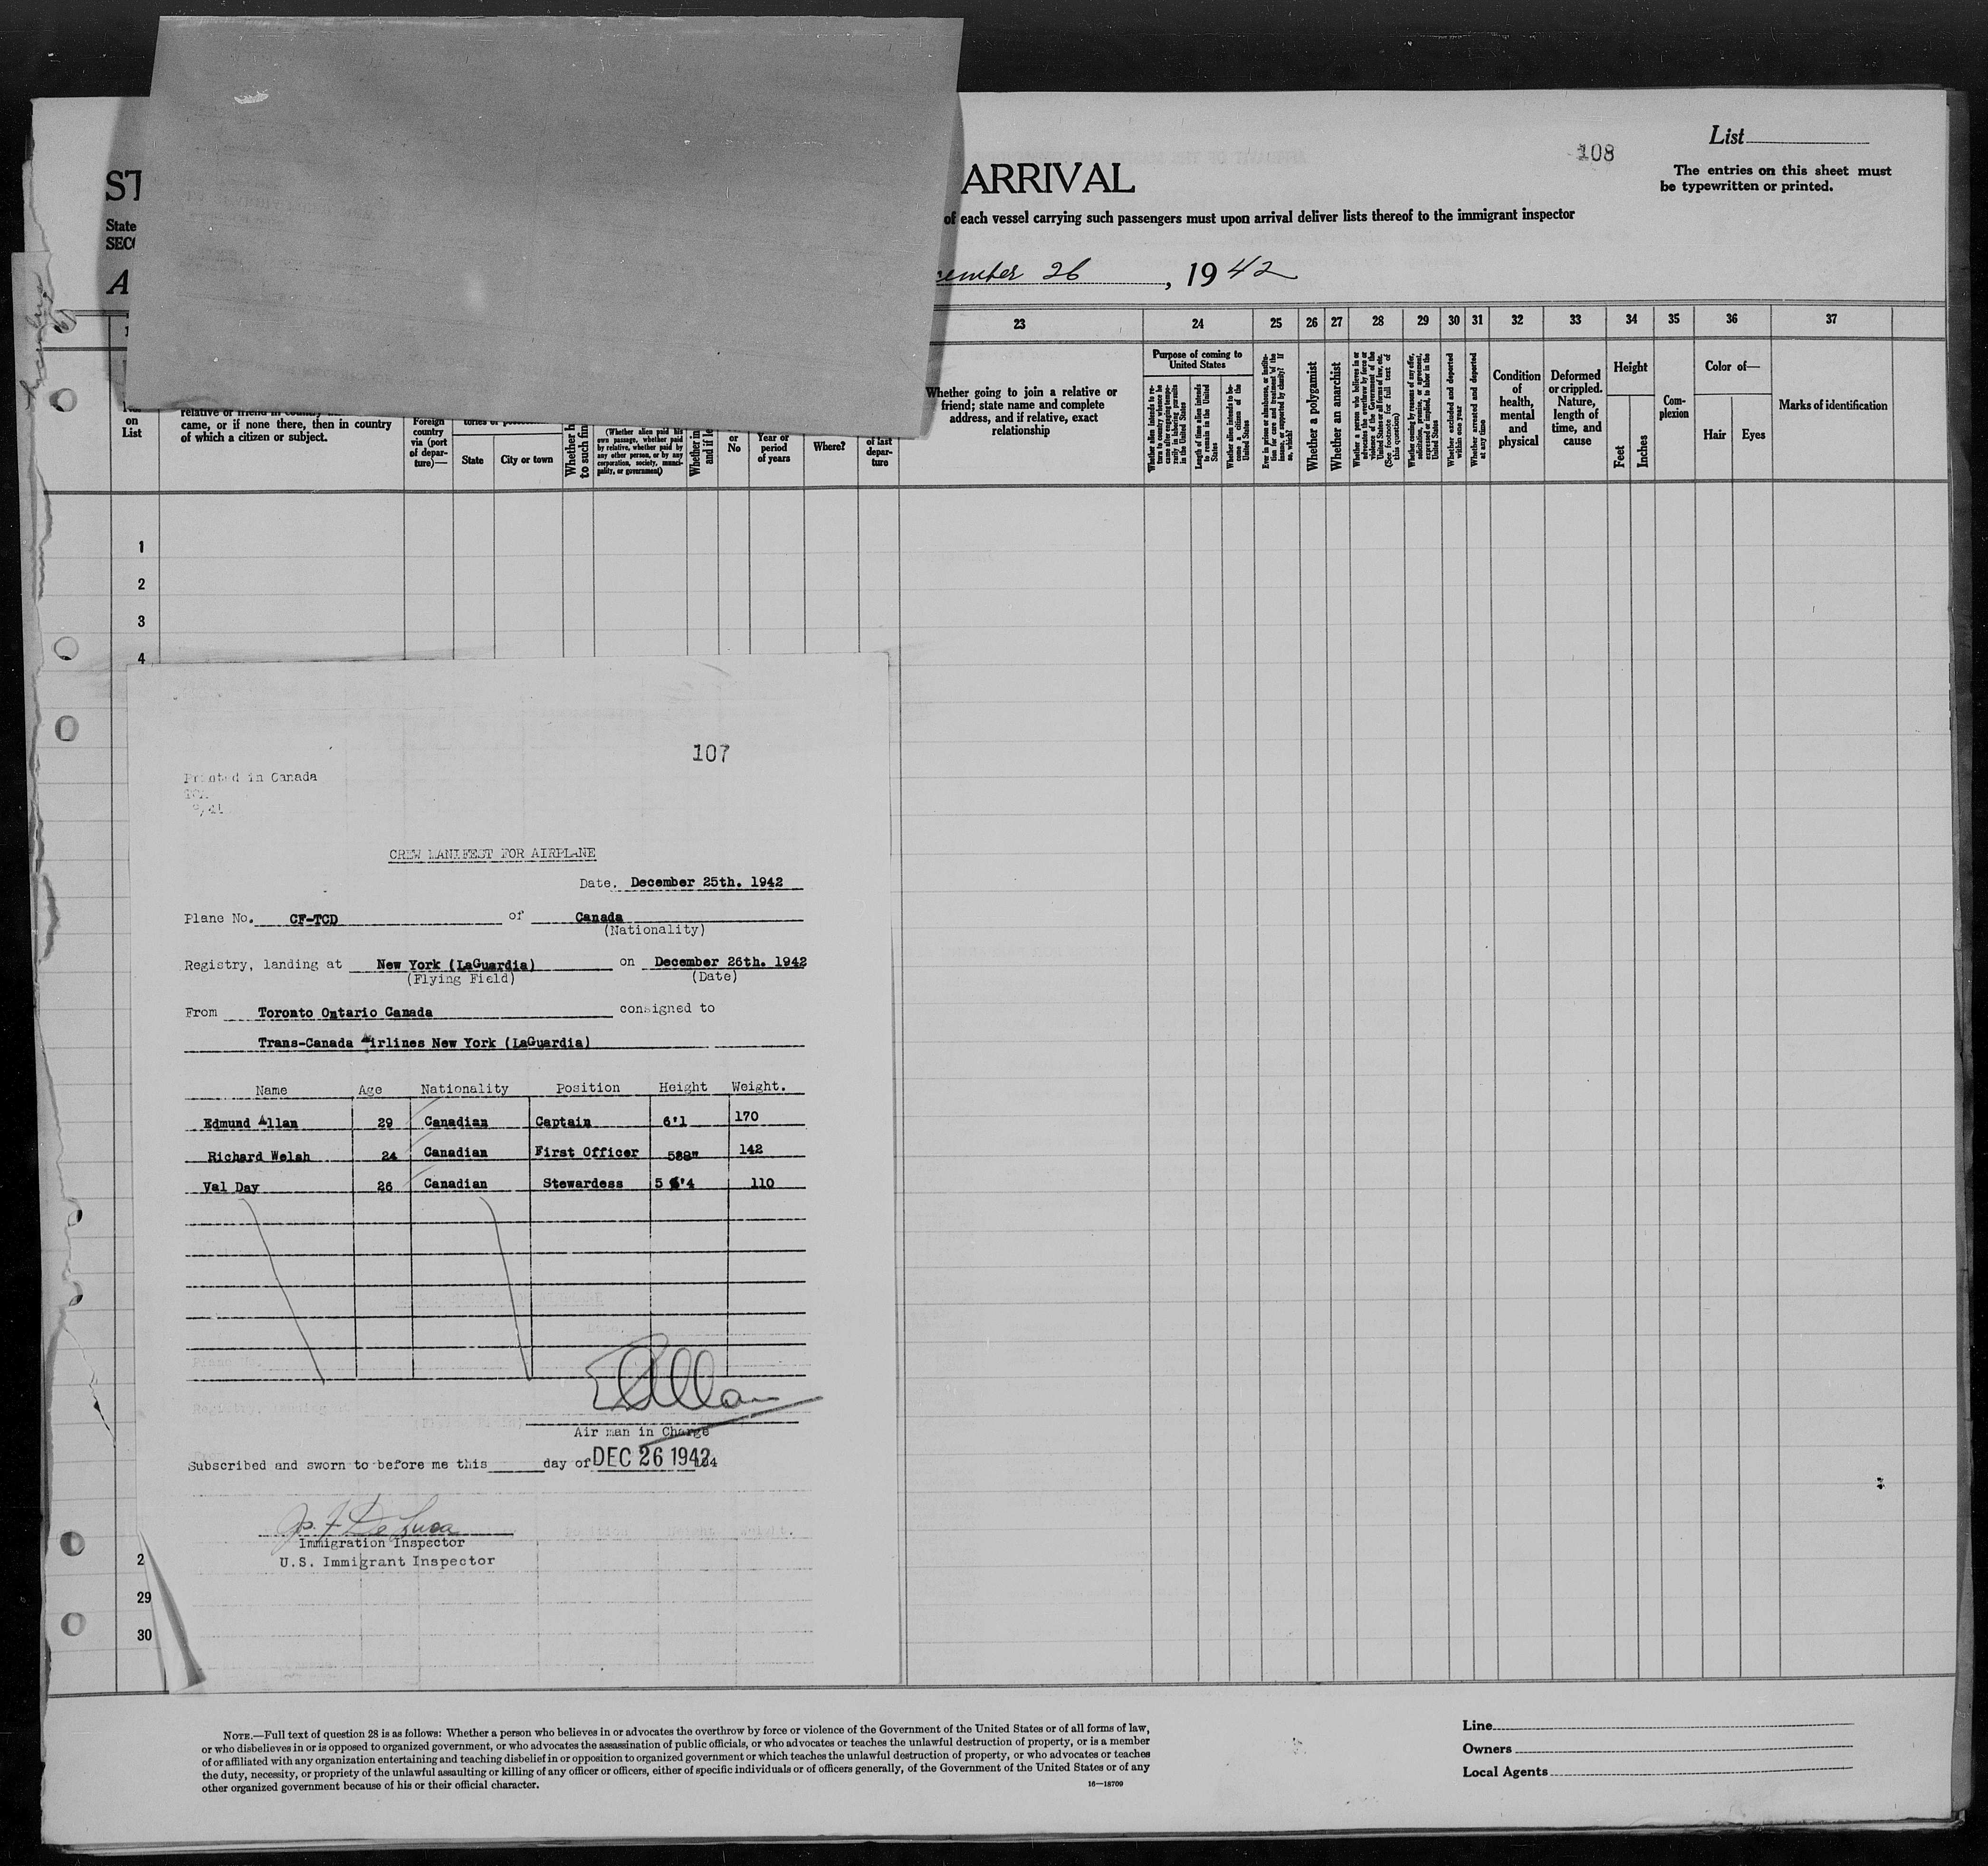 List
108
The entries on this sheet must
be typewritten or printed.
ST ARRIVAL
State of each vessel carrying such passengers must upon arrival deliver lists thereof to the immigrant inspector
SEC
A cember 26, 1942
23 24 25 26 27 28 29 30 31 32 33 34 35 36 37
No.
on
List
relative or friend in country
came, or if none there, then in country
of which a citizen or subject.
Foreign
country
via (port
of depar-
ture)—
State
City or town
Whether h
to such fin
(Whether alien paid his
own passage, whether paid
by relative, whether paid by
any other person, or by any
corporation, society, munici-
pality, or government)
Whether in
and if le
or
No
Year or
period
of years
Where?
of last
depar-
ture
Whether going to join a relative or
friend; state name and complete
address, and if relative, exact
relationship
Purpose of coming to
United States
Whether alien intends to re-
turn to country whence he
came after engaging tempo-
rarily in laboring pursuits
in the United States
Length of time alien intends
to remain in the United
States
Whether alien intends to be-
come a citizen of the
United States
Ever in prison or almshouse, or institu-
tion for care and treatment of the
insane, or supported by charity? If
so, which?
Whether a polygamist
Whether an anarchist
Whether a person who believes in or
advocates the overthrow by force or
violence of the Government of the
United States or all forms of law, etc.
(See footnote for full text of
this question)
Whether coming by reasons of any offer,
solicitation, promise, or agreement,
expressed or implied, to labor in the
United States
Whether excluded and deported
within one year
Whether arrested and deported
at any time
Condition
of
health,
mental
and
physical
Deformed
or crippled.
Nature,
length of
time, and
cause
Height
Feet
Inches
Com-
plexion
Color of—
Hair
Eyes
Marks of identification
1
2
3
4
107
Printed in Canada
TCA
CREW MANIFEST FOR AIRPLANE
Date. December 25th. 1942
Plane No. CF-TCD of Canada
(Nationality)
Registry, landing at New York (LaGuardia) on December 26th. 1942
(Flying Field) (Date)
From Toronto Ontario Canada consigned to
Trans-Canada Airlines New York (LaGuardia)
Name Age Nationality Position Height Weight.
Edmund Allan 29 Canadian Captain 6'1 170
Richard Welsh 24 Canadian First Officer 588" 142
Val Day 26 Canadian Stewardess 5 '4 110
E Allan
Air man in Charge
Subscribed and sworn to before me this day of DEC 26 1942 194
Jos. F. De Luca
Immigration Inspector
U.S. Immigrant Inspector
2
29
30
NOTE.—Full text of question 28 is as follows: Whether a person who believes in or advocates the overthrow by force or violence of the Government of the United States or of all forms of law,
or who disbelieves in or is opposed to organized government, or who advocates the assassination of public officials, or who advocates or teaches the unlawful destruction of property, or is a member
of or affiliated with any organization entertaining and teaching disbelief in or opposition to organized government or which teaches the unlawful destruction of property, or who advocates or teaches
the duty, necessity, or propriety of the unlawful assaulting or killing of any officer or officers, either of specific individuals or of officers generally, of the Government of the United States or of any
other organized government because of his or their official character.
16—18709
Line
Owners
Local Agents